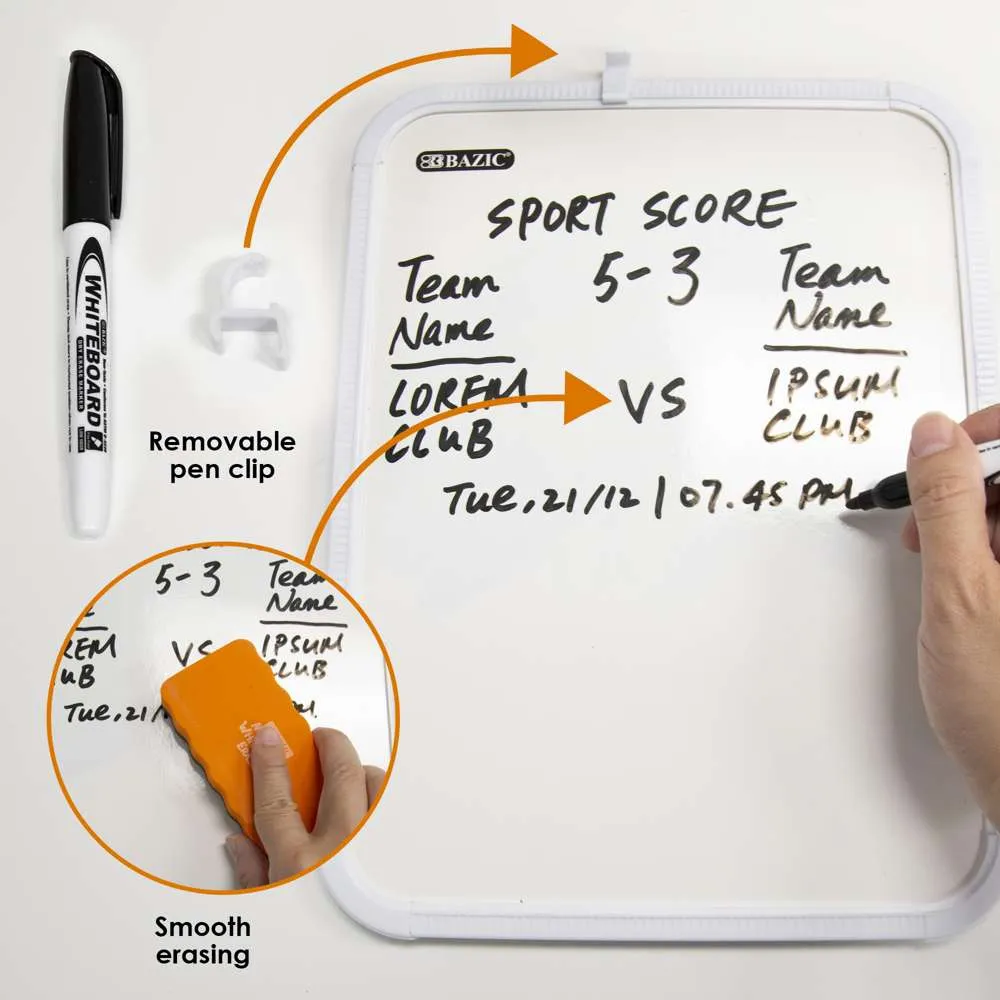 BAZIC
SPORT SCORE
Team 5-3 Team
Name Name
LOREM VS IPSUM
CLUB CLUB
Tue, 21/12 | 07.45 PM
WHITEBOARD
DRY ERASE MARKER
Removable
pen clip
5-3 Team
Name
REM VS IPSUM
UB CLUB
Tue, 21/
Smooth
erasing